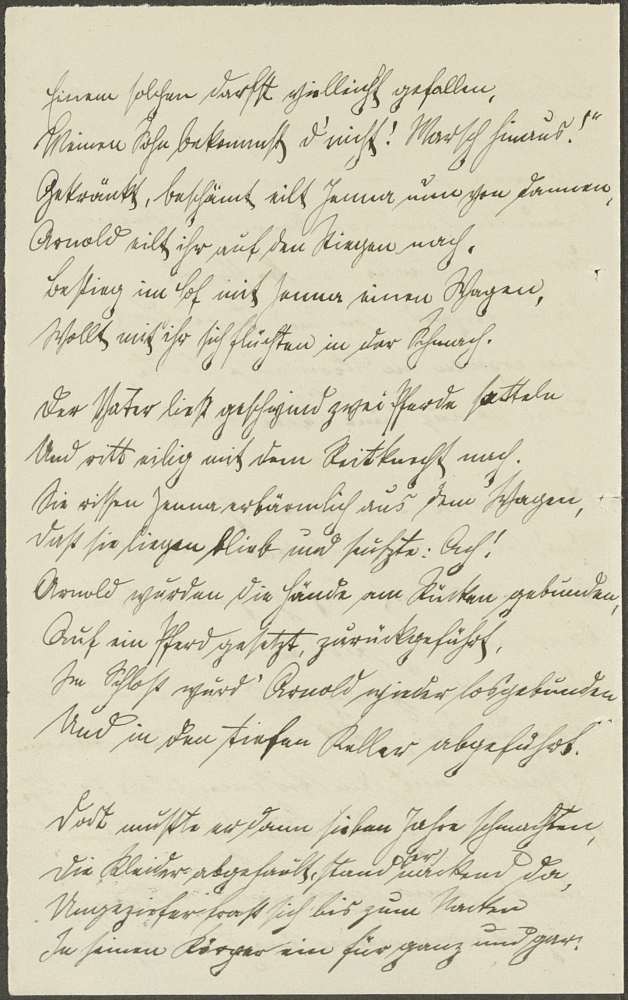 Einem solchen darfst vielleicht gefallen,
Meinen Sohn bekommst d' nicht! Marsch hinaus!"
Gekränkt, beschämt eilt Jenna nun von dannen,
Arnold eilt ihr auf den Stiegen nach.
Bestieg im Hof mit Jenna einen Wagen,
Wollt mit ihr sich flüchten in der Schmach.
Der Vater ließ geschwind zwei Pferde satteln
Und ritt eilig mit dem Reitknecht nach.
Sie rissen Jenna erbärmlich aus dem Wagen,
Daß sie liegen blieb und seufzte: Ach!
Arnold wurden die Hände am Rücken gebunden,
Auf ein Pferd gesetzt, zurückgeführt,
Im Schloß wurd' Arnold wieder losgebunden
Und in den tiefen Keller abgeführt.
Dort mußte er dann sieben Jahre schmachten,
Die Kleider abgefault, stand er nackend da,
Ungeziefer fraß sich bis zum Nacken
In seinen Körper ein für ganz und gar.